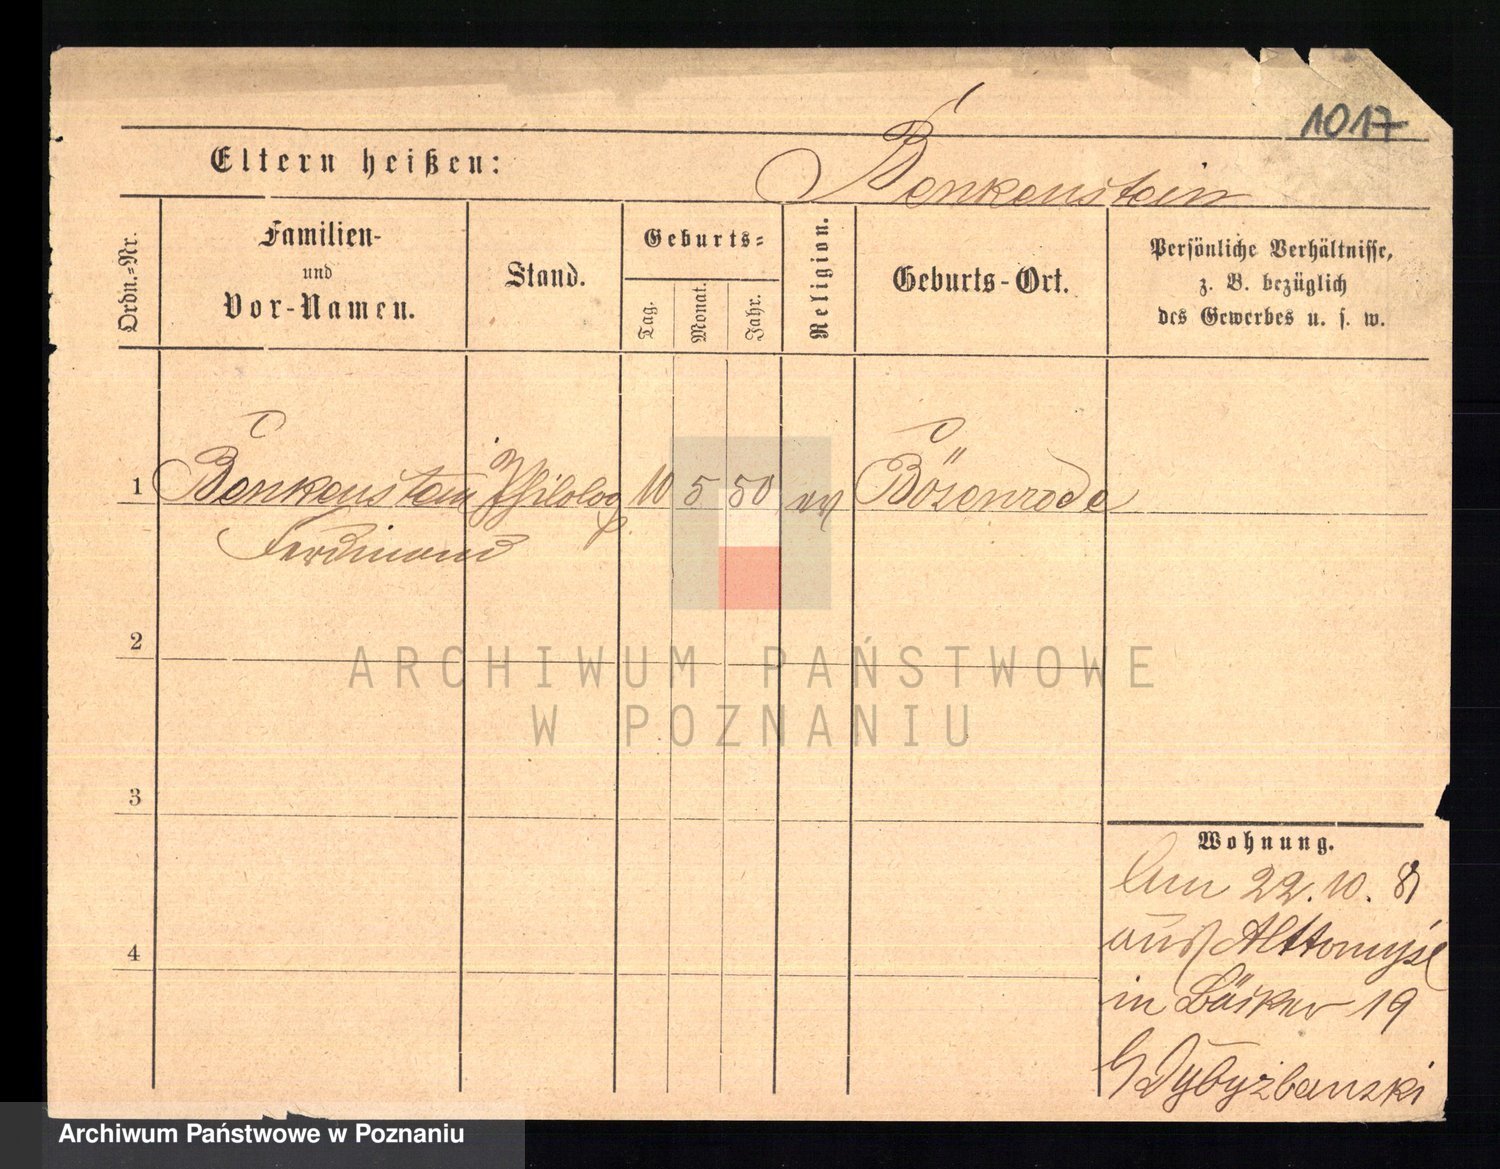 1017
Eltern heißen: Benkenstein
Ordn.=Nr.
Familien-
und
Vor-Namen.
Stand.
Geburts=
Tag.
Monat.
Jahr.
Religion.
Geburts-Ort.
Persönliche Verhältnisse,
z. B. bezüglich
des Gewerbes u. s. w.
1 Benkenstein Philolog 10 5 50 ev Bösenrode
Ferdinand
2
3
4
Wohnung.
Am 22. 10. 81
aus
in Bäcker 19
ARCHIWUM PAŃSTWOWE
W POZNANIU
Archiwum Państwowe w Poznaniu